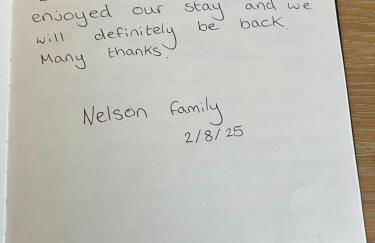 enjoyed our stay and we
will definitely be back.
Many thanks.
Nelson family
2/8/25